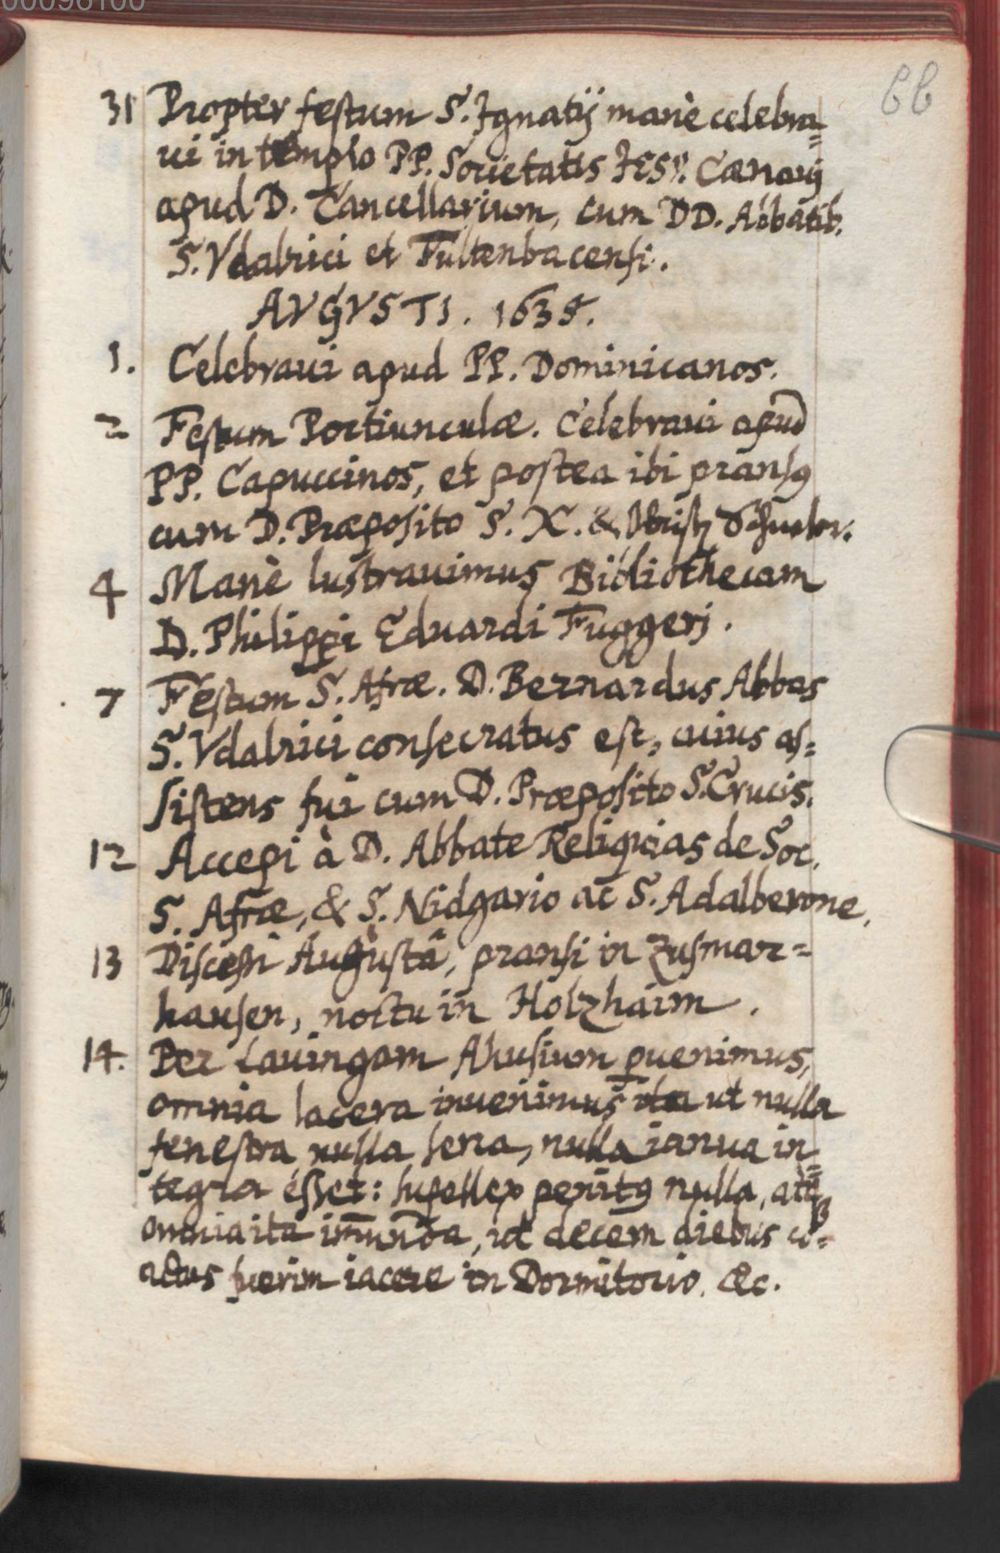 00096100
66
31 Propter festum S. Ignatij manè celebra=
ui in templo PP. Societatis IESV. Cænauj
apud D. Cancellarium, cum DD. Abbatib.
S. Vdalrici et Fultenbacensi.
AVGVSTI. 1635.
1. Celebraui apud PP. Dominicanos.
2 Festum Portiunculæ. Celebraui apud
PP. Capuccinos, et postea ibi pransꝰ
cum D. Præposito S. X. &
4 Manè lustrauimus Bibliothecam
D. Philippi Eduardi Fuggeri.
7 Festum S. Afræ. D. Bernardus Abbas
S. Vdalrici consecratus est, cuius as=
sistens fui cum D. Præposito S. Crucis.
12 Accepi à D. Abbate Reliquias de Soc.
S. Afræ, & S. Nidgario ac S. Adalberone.
13 Discessi Augustâ, pransi in Zusmar=
hausen, noctu in Holzhaim.
14. Per Lauingam Ahusium ꝑuenimus,
omnia lacera inuenimus ita ut nulla
fenestra nulla sera, nulla ianua in=
tegra esset: supellex penitꝰ nulla, atq
omnia ita im̄unda, ut decem diebus co=
actus fuerim iacere in Dormitorio. &c.